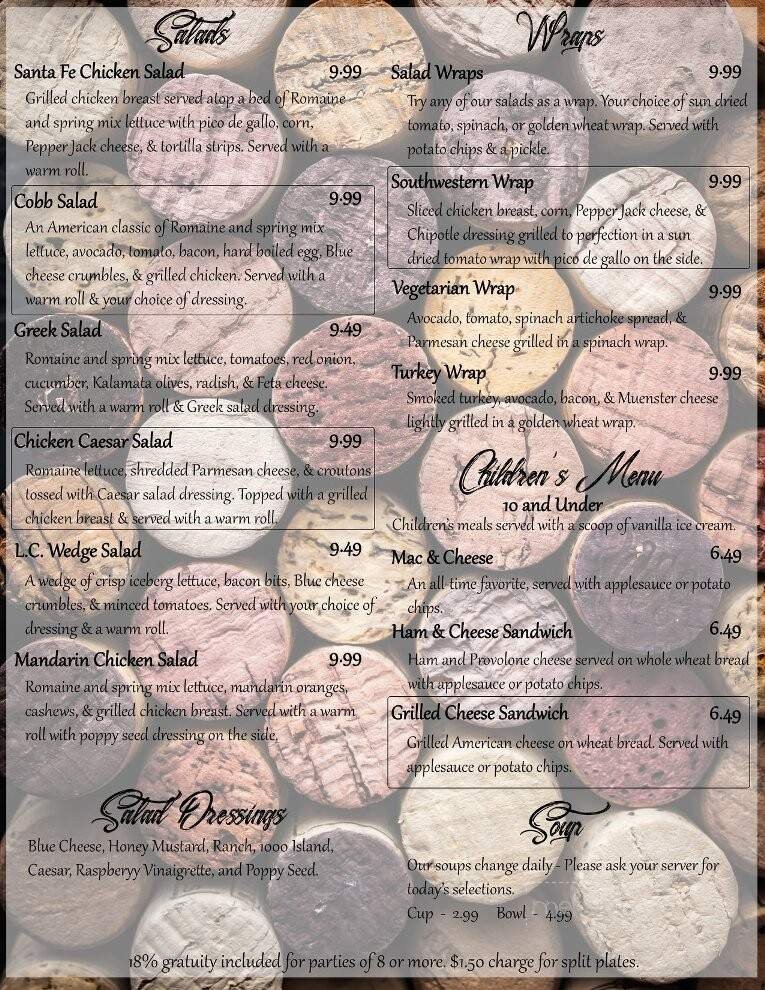 Salads
Santa Fe Chicken Salad 9.99
Grilled chicken breast served atop a bed of Romaine
and spring mix lettuce with pico de gallo, corn,
Pepper Jack cheese, & tortilla strips. Served with a
warm roll.
Cobb Salad 9.99
An American classic of Romaine and spring mix
lettuce, avocado, tomato, bacon, hard boiled egg, Blue
cheese crumbles, & grilled chicken. Served with a
warm roll & your choice of dressing.
Greek Salad 9.49
Romaine and spring mix lettuce, tomatoes, red onion,
cucumber, Kalamata olives, radish, & Feta cheese.
Served with a warm roll & Greek salad dressing.
Chicken Caesar Salad 9.99
Romaine lettuce, shredded Parmesan cheese, & croutons
tossed with Caesar salad dressing. Topped with a grilled
chicken breast & served with a warm roll.
L.C. Wedge Salad 9.49
A wedge of crisp iceberg lettuce, bacon bits, Blue cheese
crumbles, & minced tomatoes. Served with your choice of
dressing & a warm roll.
Mandarin Chicken Salad 9.99
Romaine and spring mix lettuce, mandarin oranges,
cashews, & grilled chicken breast. Served with a warm
roll with poppy seed dressing on the side.
Salad Dressings
Blue Cheese, Honey Mustard, Ranch, 1000 Island,
Caesar, Raspberyy Vinaigrette, and Poppy Seed.
Wraps
Salad Wraps 9.99
Try any of our salads as a wrap. Your choice of sun dried
tomato, spinach, or golden wheat wrap. Served with
potato chips & a pickle.
Southwestern Wrap 9.99
Sliced chicken breast, corn, Pepper Jack cheese, &
Chipotle dressing grilled to perfection in a sun
dried tomato wrap with pico de gallo on the side.
Vegetarian Wrap 9.99
Avocado, tomato, spinach artichoke spread, &
Parmesan cheese grilled in a spinach wrap.
Turkey Wrap 9.99
Smoked turkey, avocado, bacon, & Muenster cheese
lightly grilled in a golden wheat wrap.
Children's Menu
10 and Under
Children's meals served with a scoop of vanilla ice cream.
Mac & Cheese 6.49
An all-time favorite, served with applesauce or potato
chips.
Ham & Cheese Sandwich 6.49
Ham and Provolone cheese served on whole wheat bread
with applesauce or potato chips.
Grilled Cheese Sandwich 6.49
Grilled American cheese on wheat bread. Served with
applesauce or potato chips.
Soup
Our soups change daily - Please ask your server for
today's selections.
Cup - 2.99 Bowl - 4.99
18% gratuity included for parties of 8 or more. $1.50 charge for split plates.